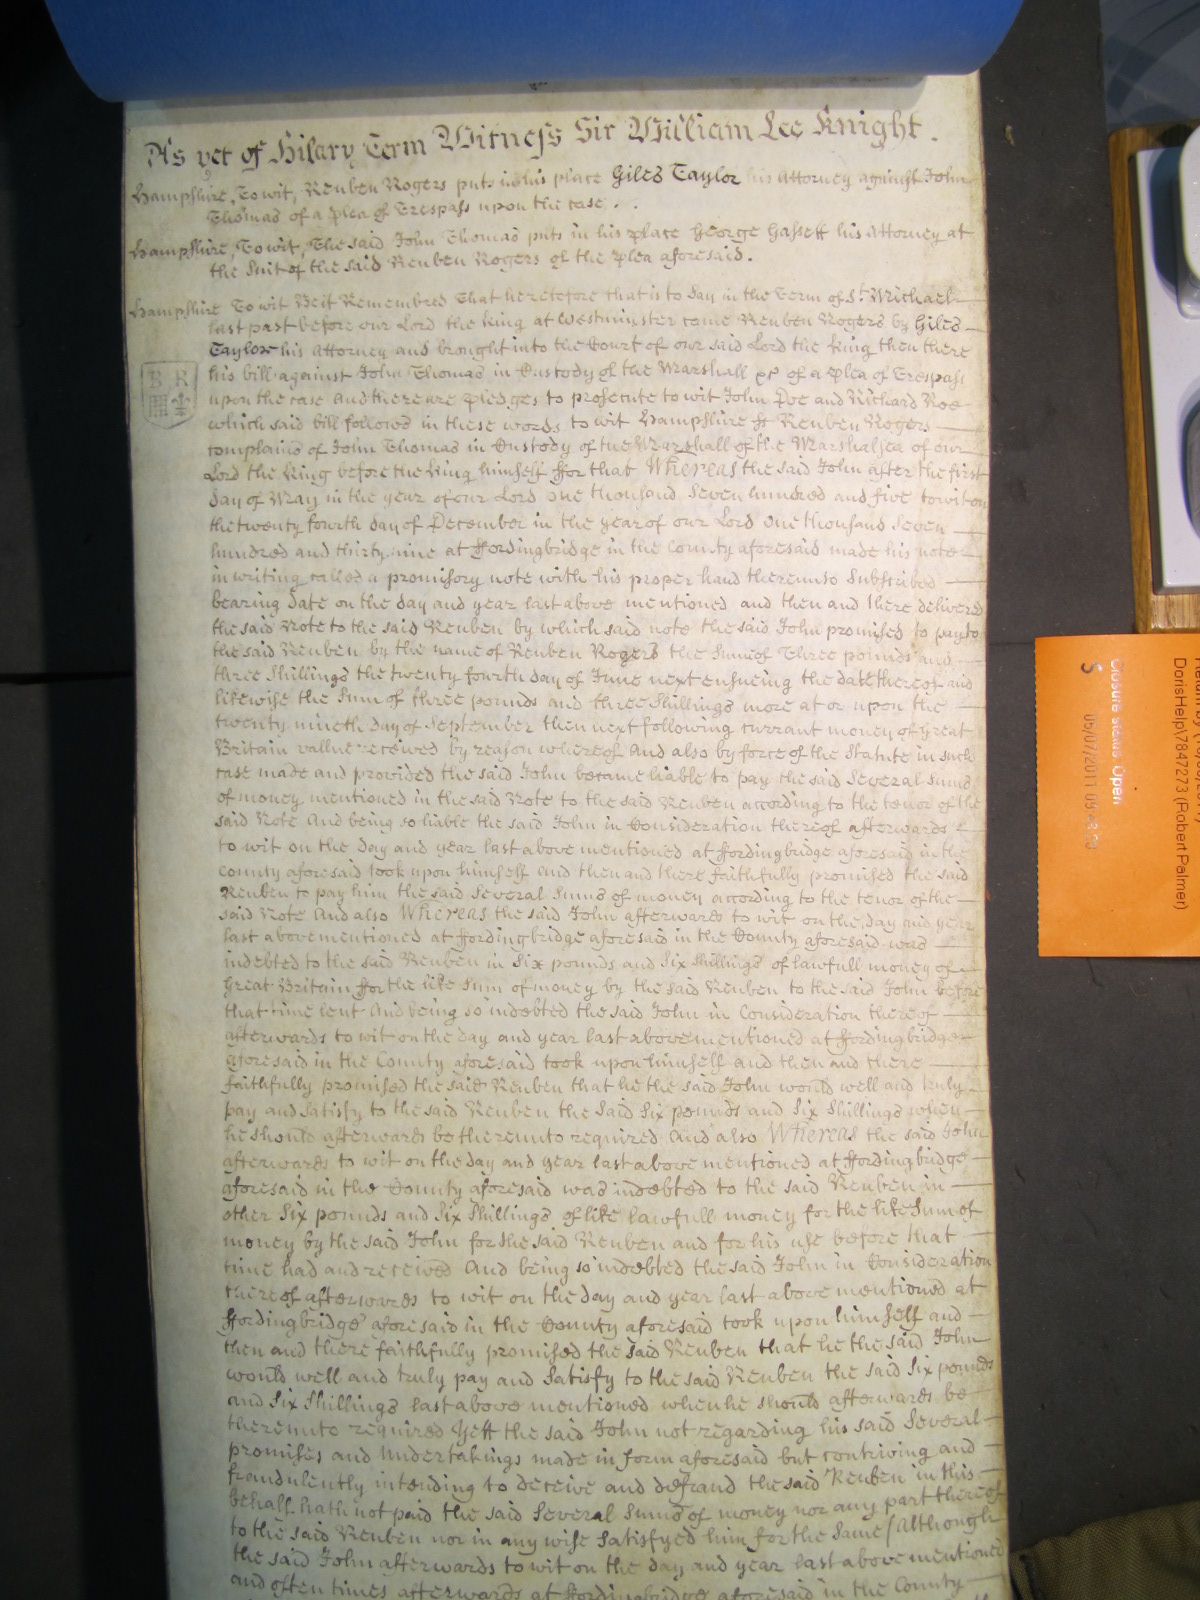 As yet of Hilary Term Witness Sir William Lee Knight.
Hampshire, To wit, Reuben Rogers puts in his place Giles Taylor his Attorney against John
Thomas of a plea of Trespass upon the case . .
Hampshire, To wit, The said John Thomas puts in his place George Gassett his Attorney at
the Suit of the said Reuben Rogers of the plea aforesaid.
Hampshire To wit Beit Remembred That heretofore that is to say in the Term of St. Michael
last past before our Lord the King at Westminster came Reuben Rogers by Giles
Taylor his Attorney and brought into the Court of our said Lord the King then there
his bill against John Thomas in Custody of the Marshall &c of a plea of Trespass
B R
upon the case And there are pledges to prosecute to wit John Doe and Richard Roe
which said bill follows in these words to wit Hampshire ss Reuben Rogers
complains of John Thomas in Custody of the Marshall of the Marshalsea of our
Lord the King before the King himself ffor that Whereas the said John after the first
day of May in the year of our Lord one thousand Seven hundred and five to wit on
the twenty fourth day of December in the year of our Lord One thousand Seven
hundred and thirty nine at ffordingbridge in the County aforesaid made his note
in writing called a promisory note with his proper hand thereunto Subscribed
bearing date on the day and year last above mentioned and then and there delivered
the said Note to the said Reuben by which said note the said John promised to pay to
the said Reuben by the name of Reuben Rogers the Sume of Three pounds and
three Shillings the twenty fourth day of June next ensueing the date thereof and
likewise the Sum of three pounds and three Shillings more at or upon the
twenty nineth day of September then next following currant money of Great
Britain vallue received by reason whereof And also by force of the Statute in such
case made and provided the said John became liable to pay the said Several Sums
of money mentioned in the said Note to the said Reuben according to the tenor of the
said Note And being so liable the said John in Consideration thereof afterwards
to wit on the day and year last above mentioned at ffordingbridge aforesaid in the
County aforesaid took upon himself and then and there faithfully promised the said
Reuben to pay him the said Several Sums of money according to the tenor of the
said Note And also Whereas the said John afterwards to wit on the day and year
last above mentioned at ffordingbridge aforesaid in the County aforesaid was
indebted to the said Reuben in Six pounds and Six Shillings of lawfull money of
Great Britain ffor the like Sum of money by the said Reuben to the said John before
that time lent And being so indebted the said John in Consideration thereof
afterwards to wit on the day and year last above mentioned at ffordingbridge
aforesaid in the County aforesaid took upon himself and then and there
faithfully promised the said Reuben that he the said John would well and truly
pay and Satisfy to the said Reuben the Said Six pounds and Six Shillings when
he should afterwards be thereunto required And also Whereas the said John
afterwards to wit on the day and year last above mentioned at ffordingbridge
aforesaid in the County aforesaid was indebted to the said Reuben in
other Six pounds and Six Shillings of like lawfull money for the like Sum of
money by the said John for the said Reuben and for his use before that
time had and received And being so indebted the said John in Consideration
thereof afterwards to wit on the day and year last above mentioned at
ffordingbridge aforesaid in the County aforesaid took upon himself and
then and there faithfully promised the said Reuben that he the said John
would well and truly pay and Satisfy to the said Reuben the said Six pounds
and Six Shillings last above mentioned when he should afterwards be
thereunto required Yett the said John not regarding his said Several
promises and Undertakings made in form aforesaid but contriving and
fraudulently intending to deceive and defraud the said Reuben in this
behalf hath not paid the said Several Sums of money nor any part thereof
to the said Reuben nor in any wise Satisfyed him for the Same (Although
the said John afterwards to wit on the day and year last above mentioned
and often times afterwards at ffordingbridge aforesaid in the County
DorisHelp\7847273 (Robert Palmer)
Closure status Open
05/07/2011
S